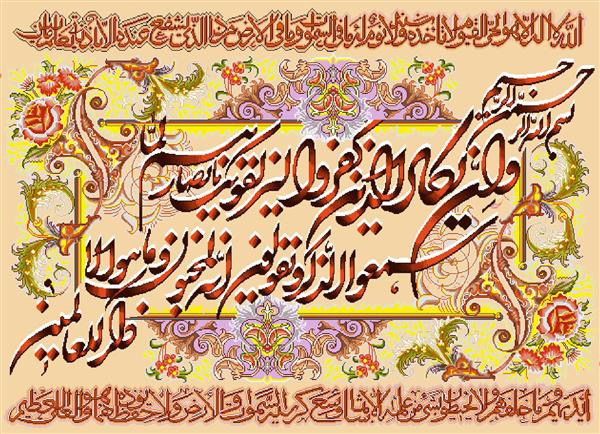 الله لا اله الا هو الحی القیوم لا تاخذه سنة و لا نوم له ما فی السموات و ما فی الارض من ذا الذی یشفع عنده الا باذنه یعلم ما بین
بسم الله الرحمن الرحیم
وان یکاد الذین کفروا لیزلقونک بابصارهم لما
سمعوا الذکر و یقولون انه لمجنون و ما هو الا
ذکر للعالمین
ایدیهم و ما خلفهم و لا یحیطون بشیء من علمه الا بما شاء وسع کرسیه السموات و الارض و لا یؤده حفظهما و هو العلی العظیم